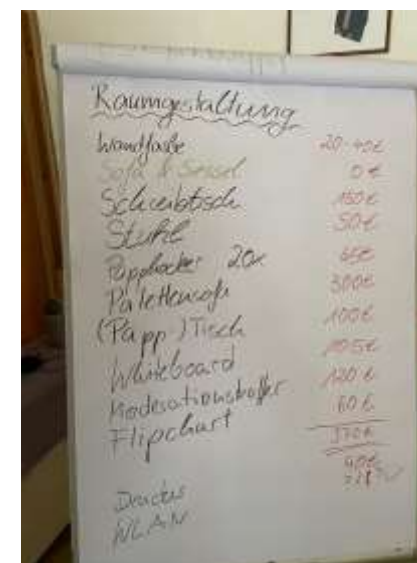 Raumgestaltung
Wandfarbe 20-40€
Sofa & Sessel 0€
Schreibtisch 150€
Stuhl 50€
Papphocker 20x
Palettensofa 300€
(Papp)Tisch 100€
Whiteboard 105€
Moderationskoffer 120€
Flipchart 60€
WLAN